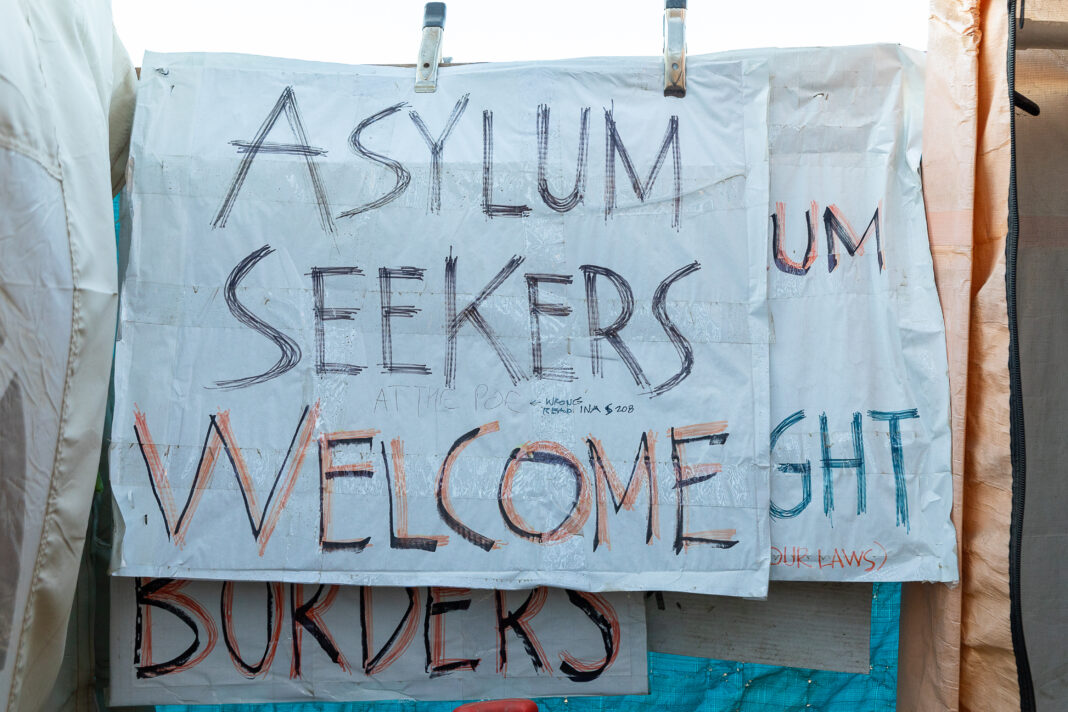 ASYLUM
SEEKERS
AT THE POE ← WRONG
READ: INA § 208
WELCOME
UM
GHT
OUR LAWS)
BORDERS